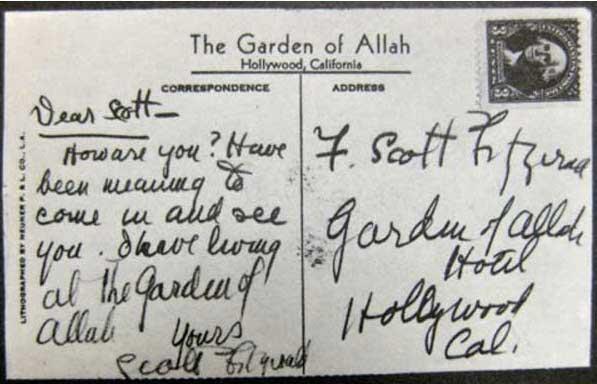 The Garden of Allah
Hollywood, California
CORRESPONDENCE
Dear Scott—
How are you? Have
been meaning to
come in and see
you. I have living
at the Garden of
Allah
Yours
Scott Fitzgerald
ADDRESS
F. Scott Fitzgerald
Garden of Allah
Hotel
Hollywood
Cal.
LITHOGRAPHED BY NEUNER P. & L. CO., L. A.
3 3